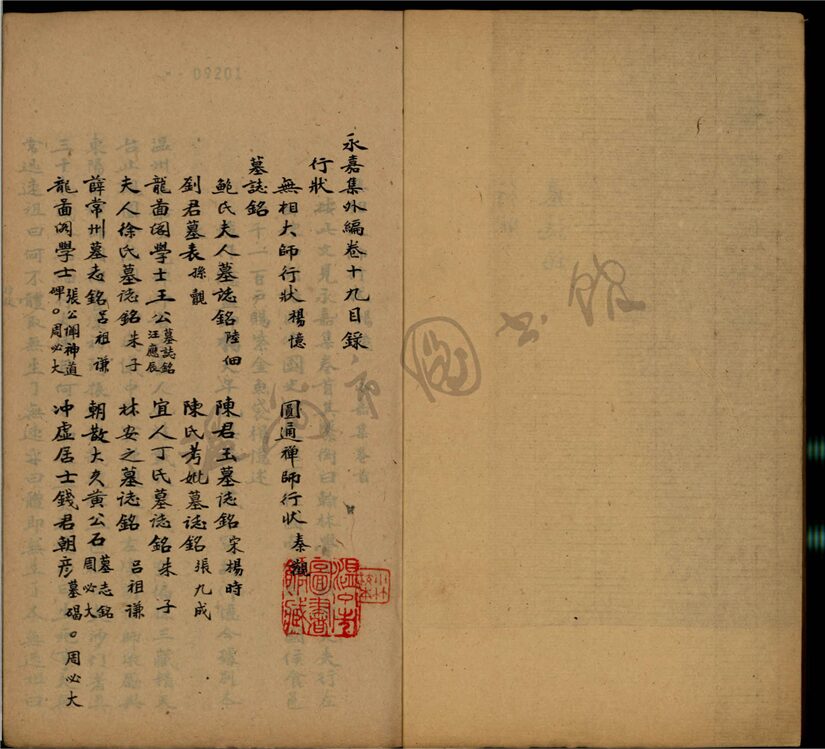 永嘉集外編卷十九目錄
行狀
無相大師行狀 楊億 圓通禪師行狀 秦觀
墓誌銘
鮑氏夫人墓誌銘 陸佃 陳君玉墓誌銘 宋楊時
劉君墓表 孫覿 陳氏考妣墓誌銘 張九成
龍啚閣學士王公墓誌銘 汪應辰 宜人丁氏墓誌銘 朱子
夫人徐氏墓誌銘 朱子 林安之墓誌銘 呂祖謙
薛常州墓志銘 呂祖謙 朝散大夫黃公石墓志銘 周必大
龍啚閣學士張公闡神道碑 周必大 冲虛居士錢君朝彥墓碣 周必大
溫州市圖書館藏
09201